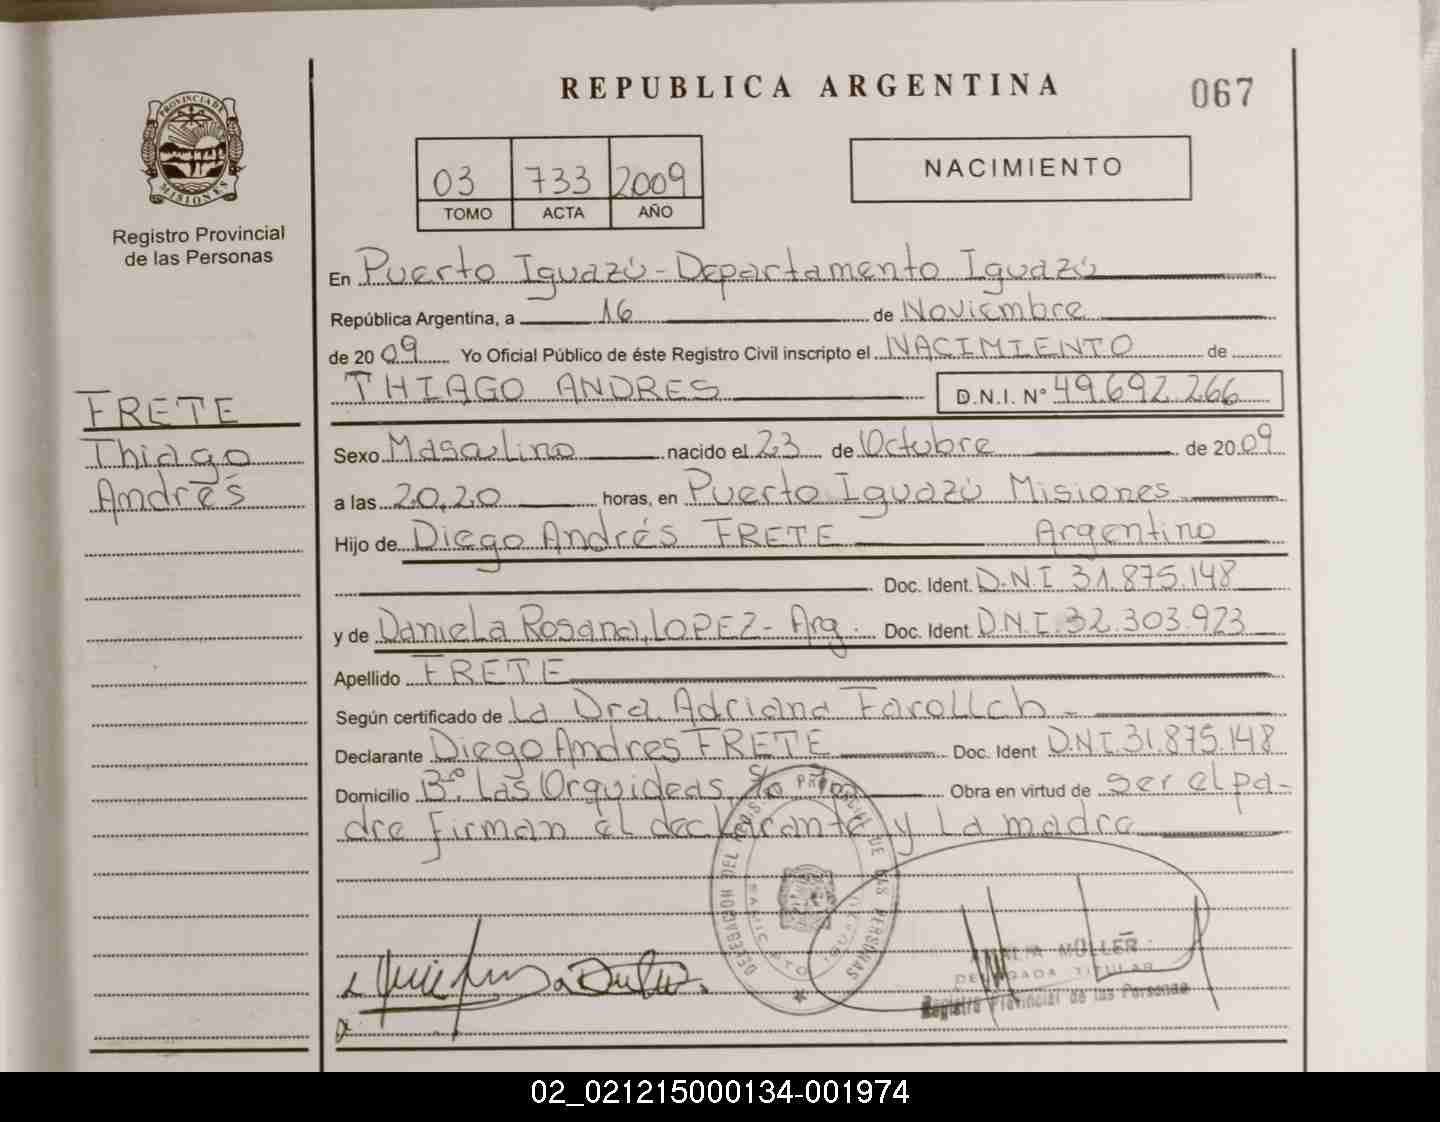 REPUBLICA ARGENTINA
067
PROVINCIA DE
MISIONES
Registro Provincial
de las Personas
03 733 2009
TOMO ACTA AÑO
NACIMIENTO
En Puerto Iguazú - Departamento Iguazú
República Argentina, a 16 de Noviembre
de 2009 Yo Oficial Público de éste Registro Civil inscripto el NACIMIENTO de
THIAGO ANDRES D.N.I. Nº 49.692.266
FRETE
Thiago
Andrés
Sexo Masculino nacido el 23 de Octubre de 2009
a las 20,20 horas, en Puerto Iguazú Misiones
Hijo de Diego Andrés FRETE Argentino
Doc. Ident. D.N.I 31.875.148
y de Daniela Rosana, LOPEZ - Arg. Doc. Ident. D.N.I. 32.303.923
Apellido FRETE
Según certificado de La Dra Adriana
Declarante Diego Andres FRETE Doc. Ident D.N.I 31.875.148
Domicilio Bº. Las Orquideas, Obra en virtud de ser el pa-
dre firman el declarante y La madre
DELEGACION DEL DE LAS PERSONAS
MULLER
DELEGADA TITULAR
Registro Provincial de las Personas
02_021215000134-001974